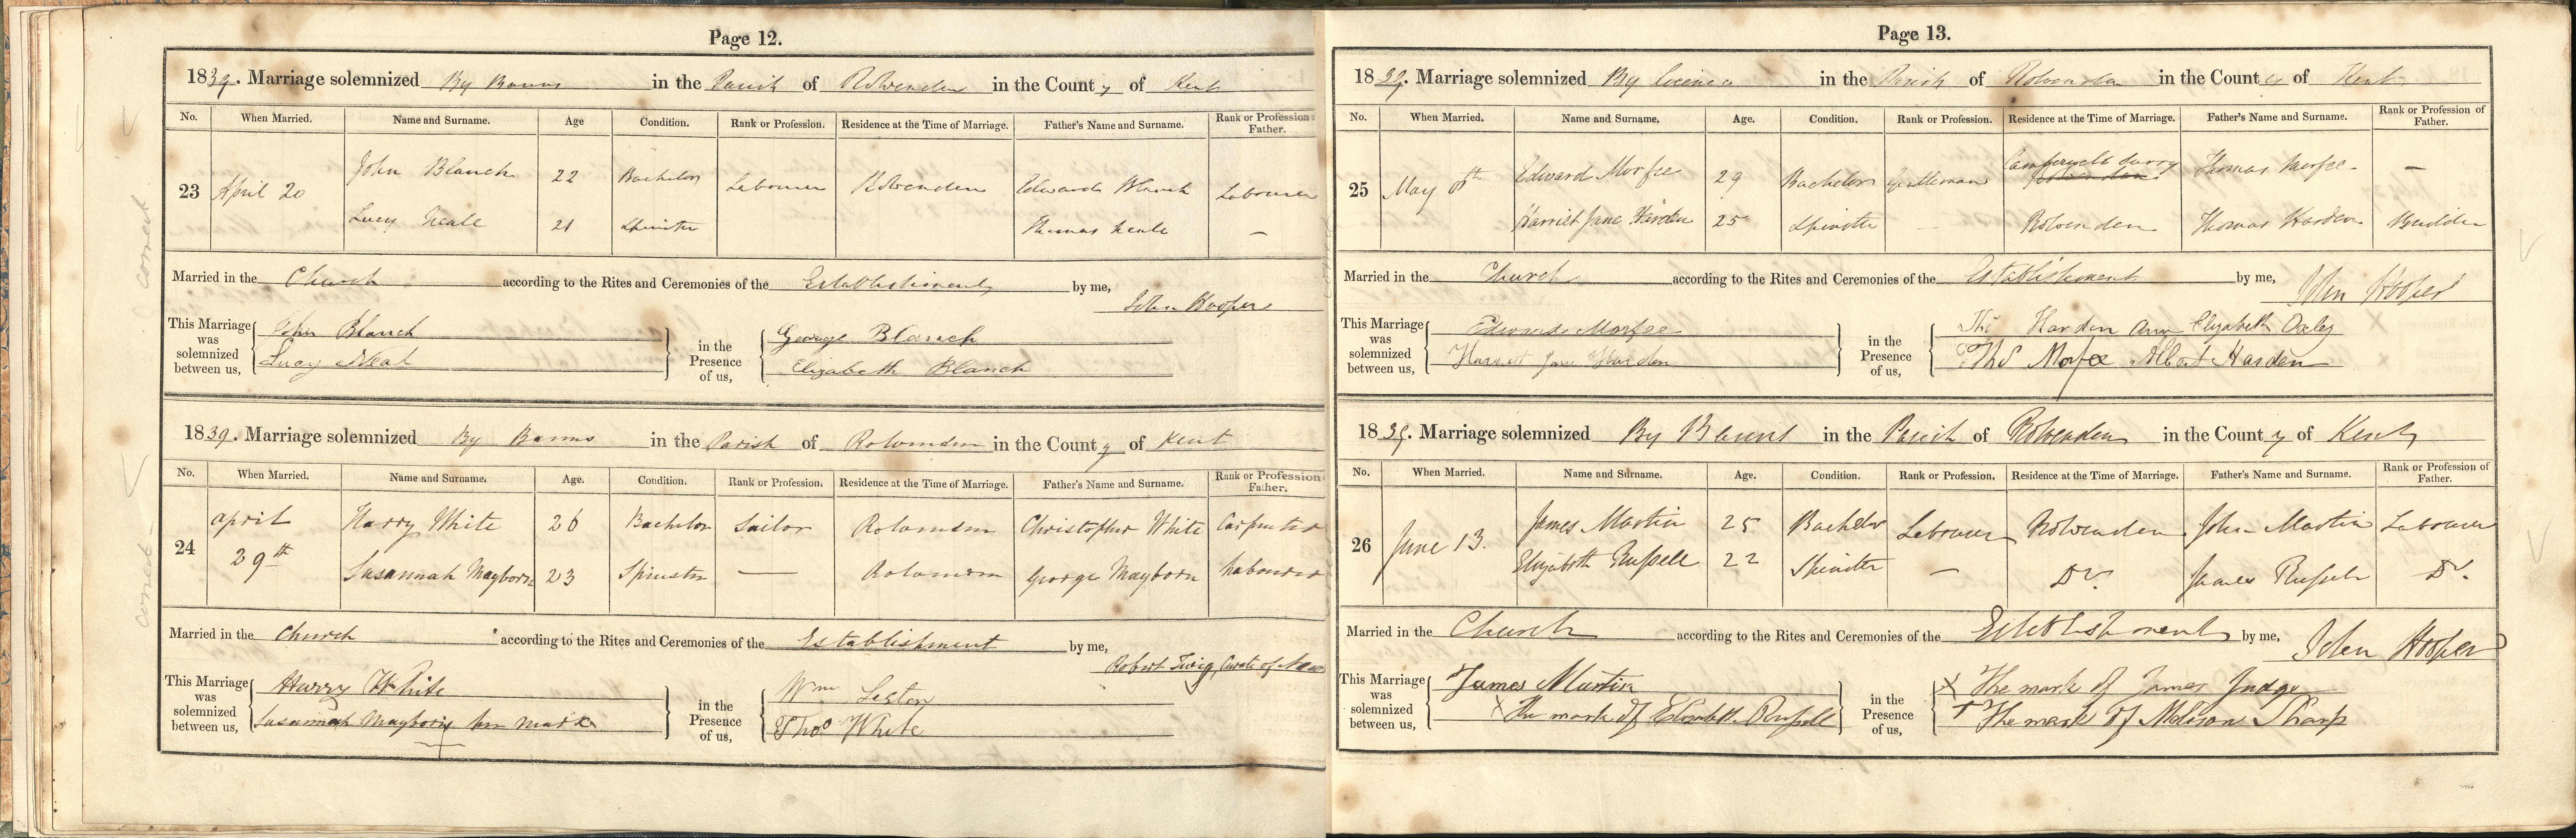 Page 12.
1839. Marriage solemnized By Banns in the Parish of Rolvenden in the County of Kent
No. When Married. Name and Surname. Age Condition. Rank or Profession. Residence at the Time of Marriage. Father's Name and Surname. Rank or Profession Father.
23 April 20 John Blanch 22 Bachelor Labourer Rolvenden Edward Blanch Labourer
Lucy Neale 21 Spinster Thomas Neale –
Married in the Church according to the Rites and Ceremonies of the Establishment by me,
John Hooper
This Marriage was solemnized between us, John Blanch in the Presence of us, George Blanch
Lucy Neal Elizabeth Blanch
1839. Marriage solemnized By Banns in the Parish of Rolvenden in the County of Kent
No. When Married. Name and Surname. Age. Condition. Rank or Profession. Residence at the Time of Marriage. Father's Name and Surname. Rank or Profession Father.
24 April 29th Harry White 26 Bachelor Sailor Rolvenden Christopher White Carpenter
Susannah Mayborn 23 Spinster — Rolvenden George Mayborn Labourer
Married in the Church according to the Rites and Ceremonies of the Establishment by me,
Robert Twigg, Curate of
This Marriage was solemnized between us, Harry White in the Presence of us, Wm
Susannah Mayborn her mark Thos White
correct
correct
Page 13.
1839. Marriage solemnized By Licence in the Parish of Rolvenden in the County of Kent
No. When Married. Name and Surname. Age. Condition. Rank or Profession. Residence at the Time of Marriage. Father's Name and Surname. Rank or Profession of Father.
25 May 6th Edward Morfee 29 Bachelor Gentleman Camberwell Surry Thomas Morfee –
Rolvenden
Harriet Jane Harden 25 Spinster – Rolvenden Thomas Harden Builder
Married in the Church according to the Rites and Ceremonies of the Establishment by me, John Hooper
This Marriage was solemnized between us, Edward Morfee in the Presence of us, Tho Harden Ann Elizabeth Oxley
Harriet Jane Harden Thos Morfee Albert Harden
1839. Marriage solemnized By Banns in the Parish of Rolvenden in the County of Kent
No. When Married. Name and Surname. Age. Condition. Rank or Profession. Residence at the Time of Marriage. Father's Name and Surname. Rank or Profession of Father.
26 June 13. James Martin 25 Bachelor Labourer Rolvenden John Martin Labourer
Elizabeth Russell 22 Spinster – Do. James Russell Do.
Married in the Church according to the Rites and Ceremonies of the Establishment by me, John Hooper
This Marriage was solemnized between us, James Martin in the Presence of us, X The mark of James Judge
X The mark of Elizabeth Russell X The mark of Sharp